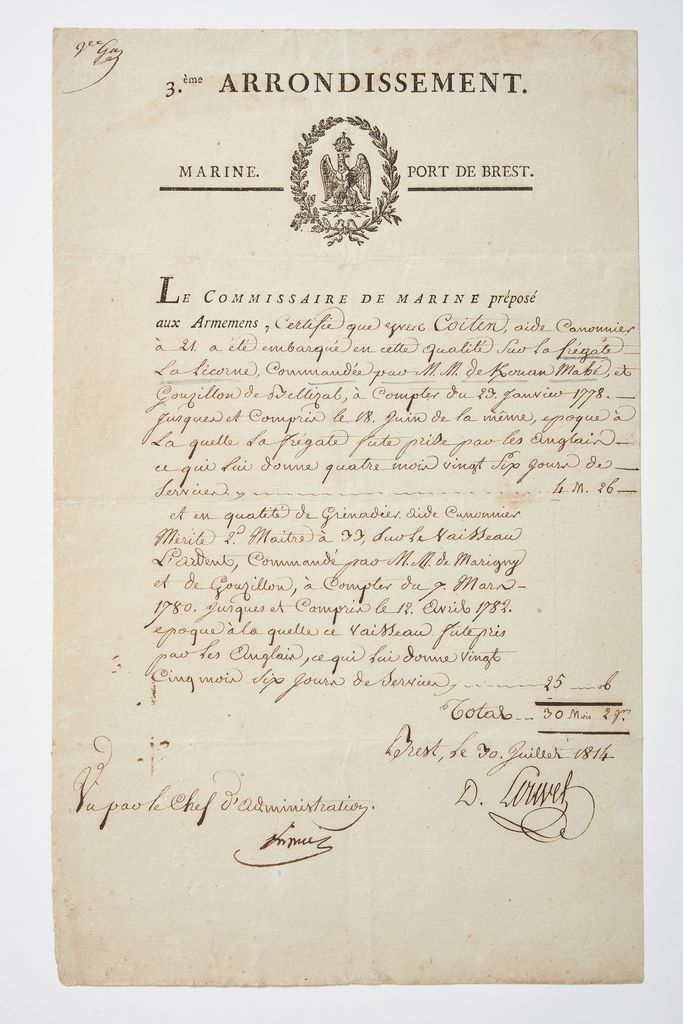 3.ème ARRONDISSEMENT.
MARINE. PORT DE BREST.
LE COMMISSAIRE DE MARINE préposé
aux Armemens, Certifie que yves Coiten, aide Canonnier
à 21 a été embarqué en cette qualité Sur la frégate
La Licorne, Commandée par M.M. de Rouan Mahé, et
Gouzillon de Bellizal, à Compter du 23. janvier 1778.
jusques et Compris le 18. juin de la même, epoque à
La quelle La frégate fute prise par les Anglais
ce qui Lui donne quatre mois vingt Six jours de
Services 4 M. 26
et en qualité de Grénadier aide Canonnier
Mérite 2.e Maitre à 33, Sur le Vaisseau
L'ardent, Commandé par M.M. de Marigny
et de Gouzillon, à Compter du 7. Mars
1780. jusques et Compris le 12. Avril 1782.
epoque à la quelle ce Vaisseau fute pris
par Les Anglais, ce qui Lui donne vingt
Cinq mois Six jours de Services 25 6
Total 30 Mois 2 jrs
Brest, Le 30. Juillet 1814
Vu par le Chef d'administration. D. Louvel